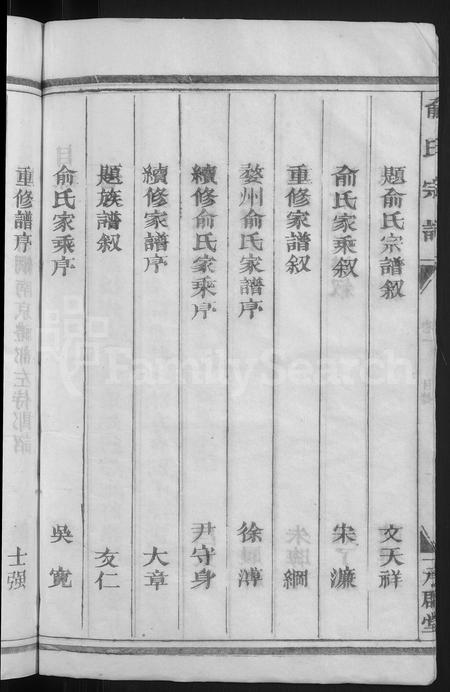 俞氏宗譜
題俞氏宗譜叙 文天祥
俞氏家乘叙 宋濂
重修家譜叙 綱
婺州俞氏家譜序 徐溥
續修俞氏家乘序 尹守身
續修家譜序 大章
題族譜叙 友仁
俞氏家乘序 吳寬
重修譜序 士强
FamilySearch